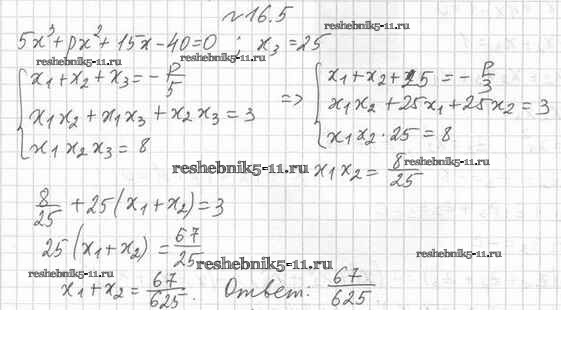 №16.5
reshebnik5-11.ru
5x³+px²+15x-40=0 ; x₃=25
reshebnik5-11.ru reshebnik5-11.ru
{ x₁+x₂+x₃=-p/5 => { x₁+x₂+25=-p/3
x₁x₂+x₁x₃+x₂x₃=3 x₁x₂+25x₁+25x₂=3
x₁x₂x₃=8 x₁x₂·25=8
reshebnik5-11.ru x₁x₂=8/25 reshebnik5-11.ru
8/25+25(x₁+x₂)=3
25(x₁+x₂)=67/25
reshebnik5-11.ru reshebnik5-11.ru reshebnik5-11.ru
x₁+x₂=67/625. Ответ: 67/625.